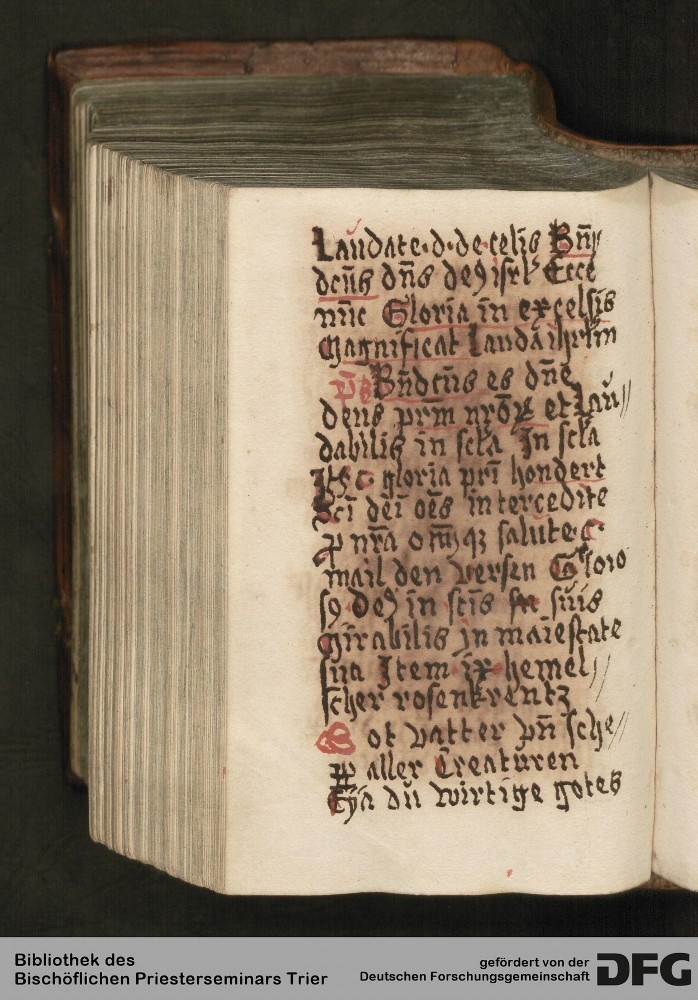 Laudate·d·de·celis Bn̄//
dcūs dn̄s deꝯ isrl̓ Ecce
nūc Gloria in excelsis
Magnificat Lauda ihrl̓m
p̄s Bn̄dcūs es dn̄e
deus pr̄m nr̄oꝝ et Lau//
dabilis in scl̓a In scl̓a
gloria pr̄i hondert
Sc̄i dēi oēs intercedite
ꝓ nr̄a om̄iqꝫ salute·c·
mail den versen Glorio
sꝯ deꝯ in sc̄is suis
Mirabilis in maiestate
sua Item ix hemel//
scher rosenkrentz
Got vatter vn̄ sche//
aller Creaturen
Eya du wirtige gotes
Bibliothek des
Bischöflichen Priesterseminars Trier
gefördert von der
Deutschen Forschungsgemeinschaft
DFG